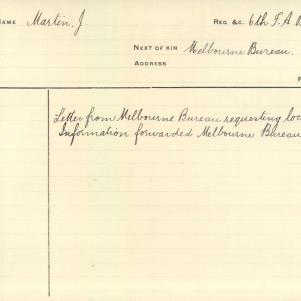 NAME Martin, J. REG &C. 6th F.A.B
NEXT OF KIN Melbourne Bureau.
ADDRESS
Letter from Melbourne Bureau requesting loc
Information forwarded Melbourne Bureau